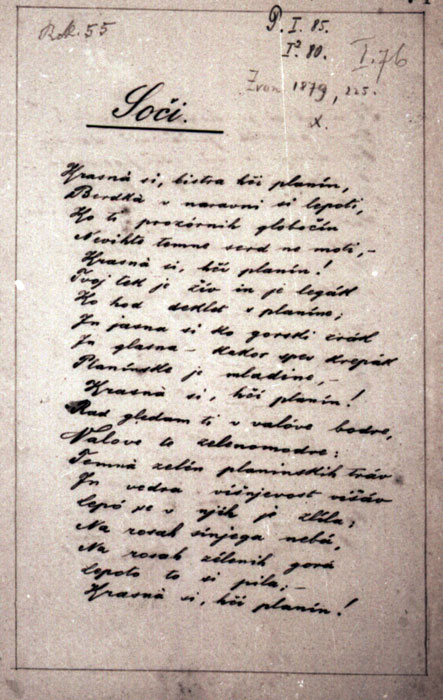 Rok. 55
P. I. 85.
I² 80.
I. 76
Zvon 1879, 225.
X.
Soči.
Krasnà si, bistra hči planin,
Berdkà v naravni si lepoti,
Ko ti prozornih globočin
Nevihte temne serd ne moti, –
Krasnà si, hči planin!
Tvoj tek je živ in je legàk
Ko hod deklet s planine;
In jasna si ko gorski zràk
In glasna – kakor spev krepàk
Planinske je mladine, –
Krasnà si, hči planin!
Rad gledam ti v valòve bodre,
Valove te zelenomodre:
Temnà zelèn planinskih tráv
In vedra višnjevost višàv
Lepó se v njih je zlila;
Na rosah sinjega nebá,
Na rosah zélenih gorá
Lepoto to si pila; –
Krasnà si, hči planin!